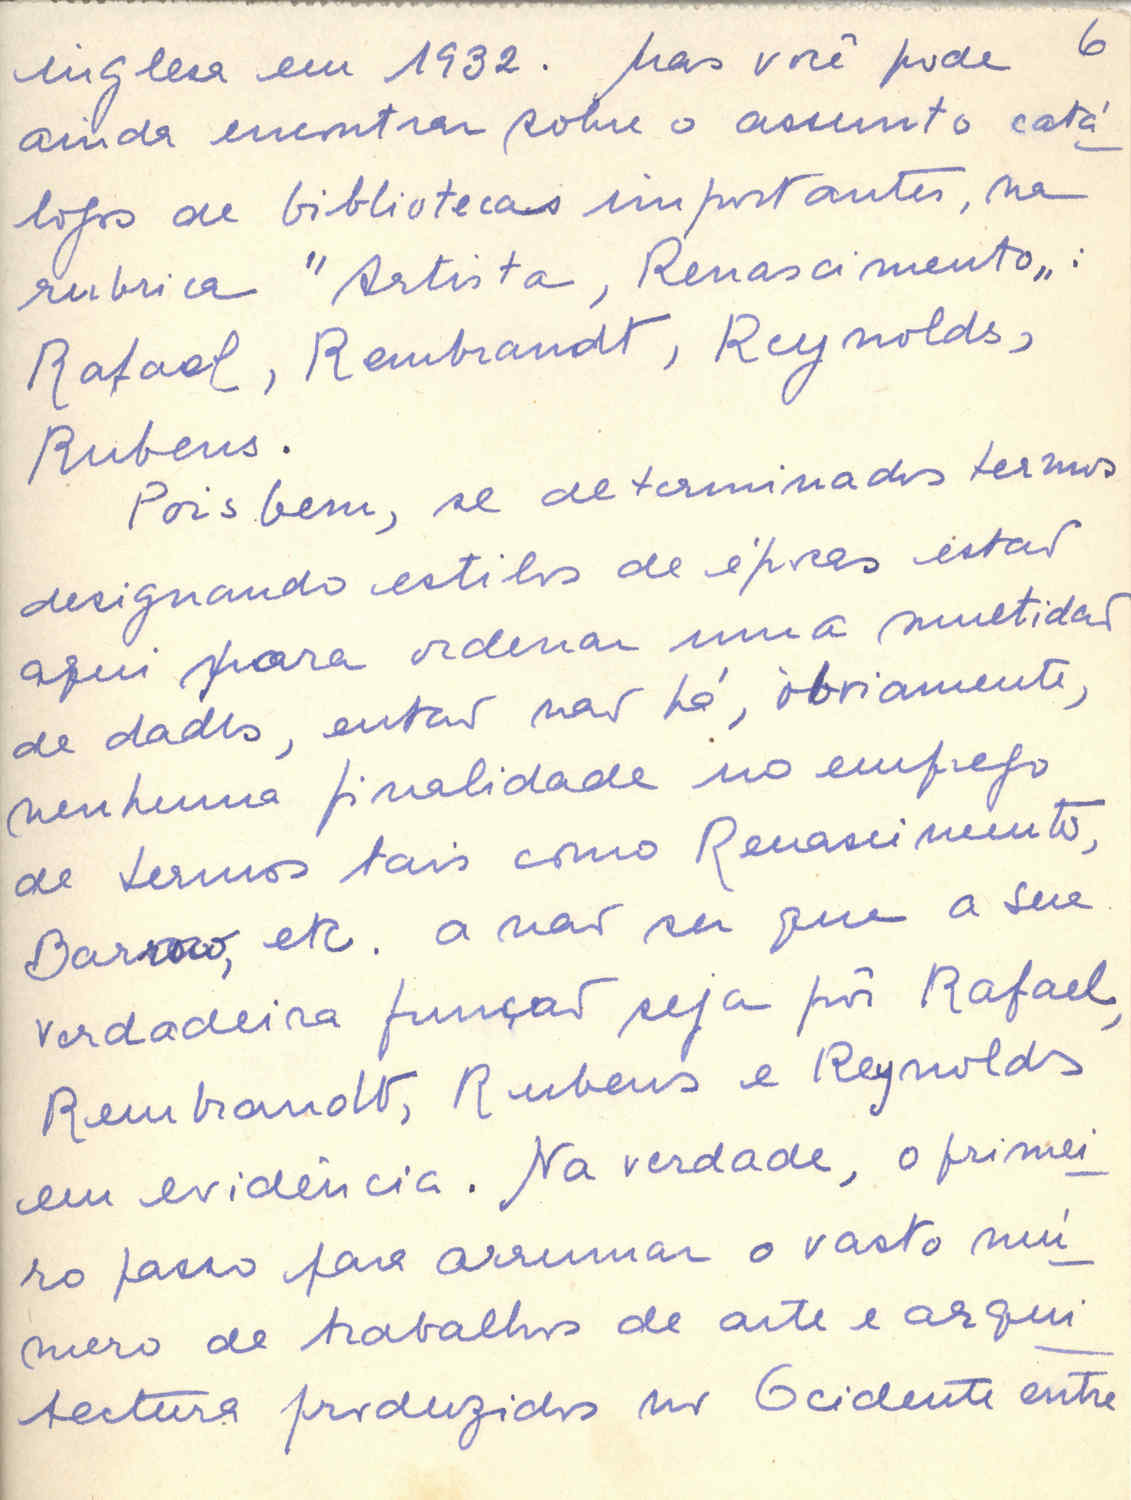 6
inglesa em 1932. Mas você pode
ainda encontrar sobre o assunto catá
logos de bibliotecas importantes, na
rubrica "Artista, Renascimento„:
Rafael, Rembrandt, Reynolds,
Rubens.
Pois bem, se determinados termos
designando estilos de épocas estão
aqui para ordenar uma multidão
de dados, então não há, òbviamente,
nenhuma finalidade no emprego
de termos tais como Renascimento,
Barroco, etc. a não ser que a sua
verdadeira função seja pôr Rafael,
Rembrandt, Rubens e Reynolds
em evidência. Na verdade, o primei
ro passo para arrumar o vasto nú
mero de trabalhos de arte e arqui
tectura produzidos no Ocidente entre